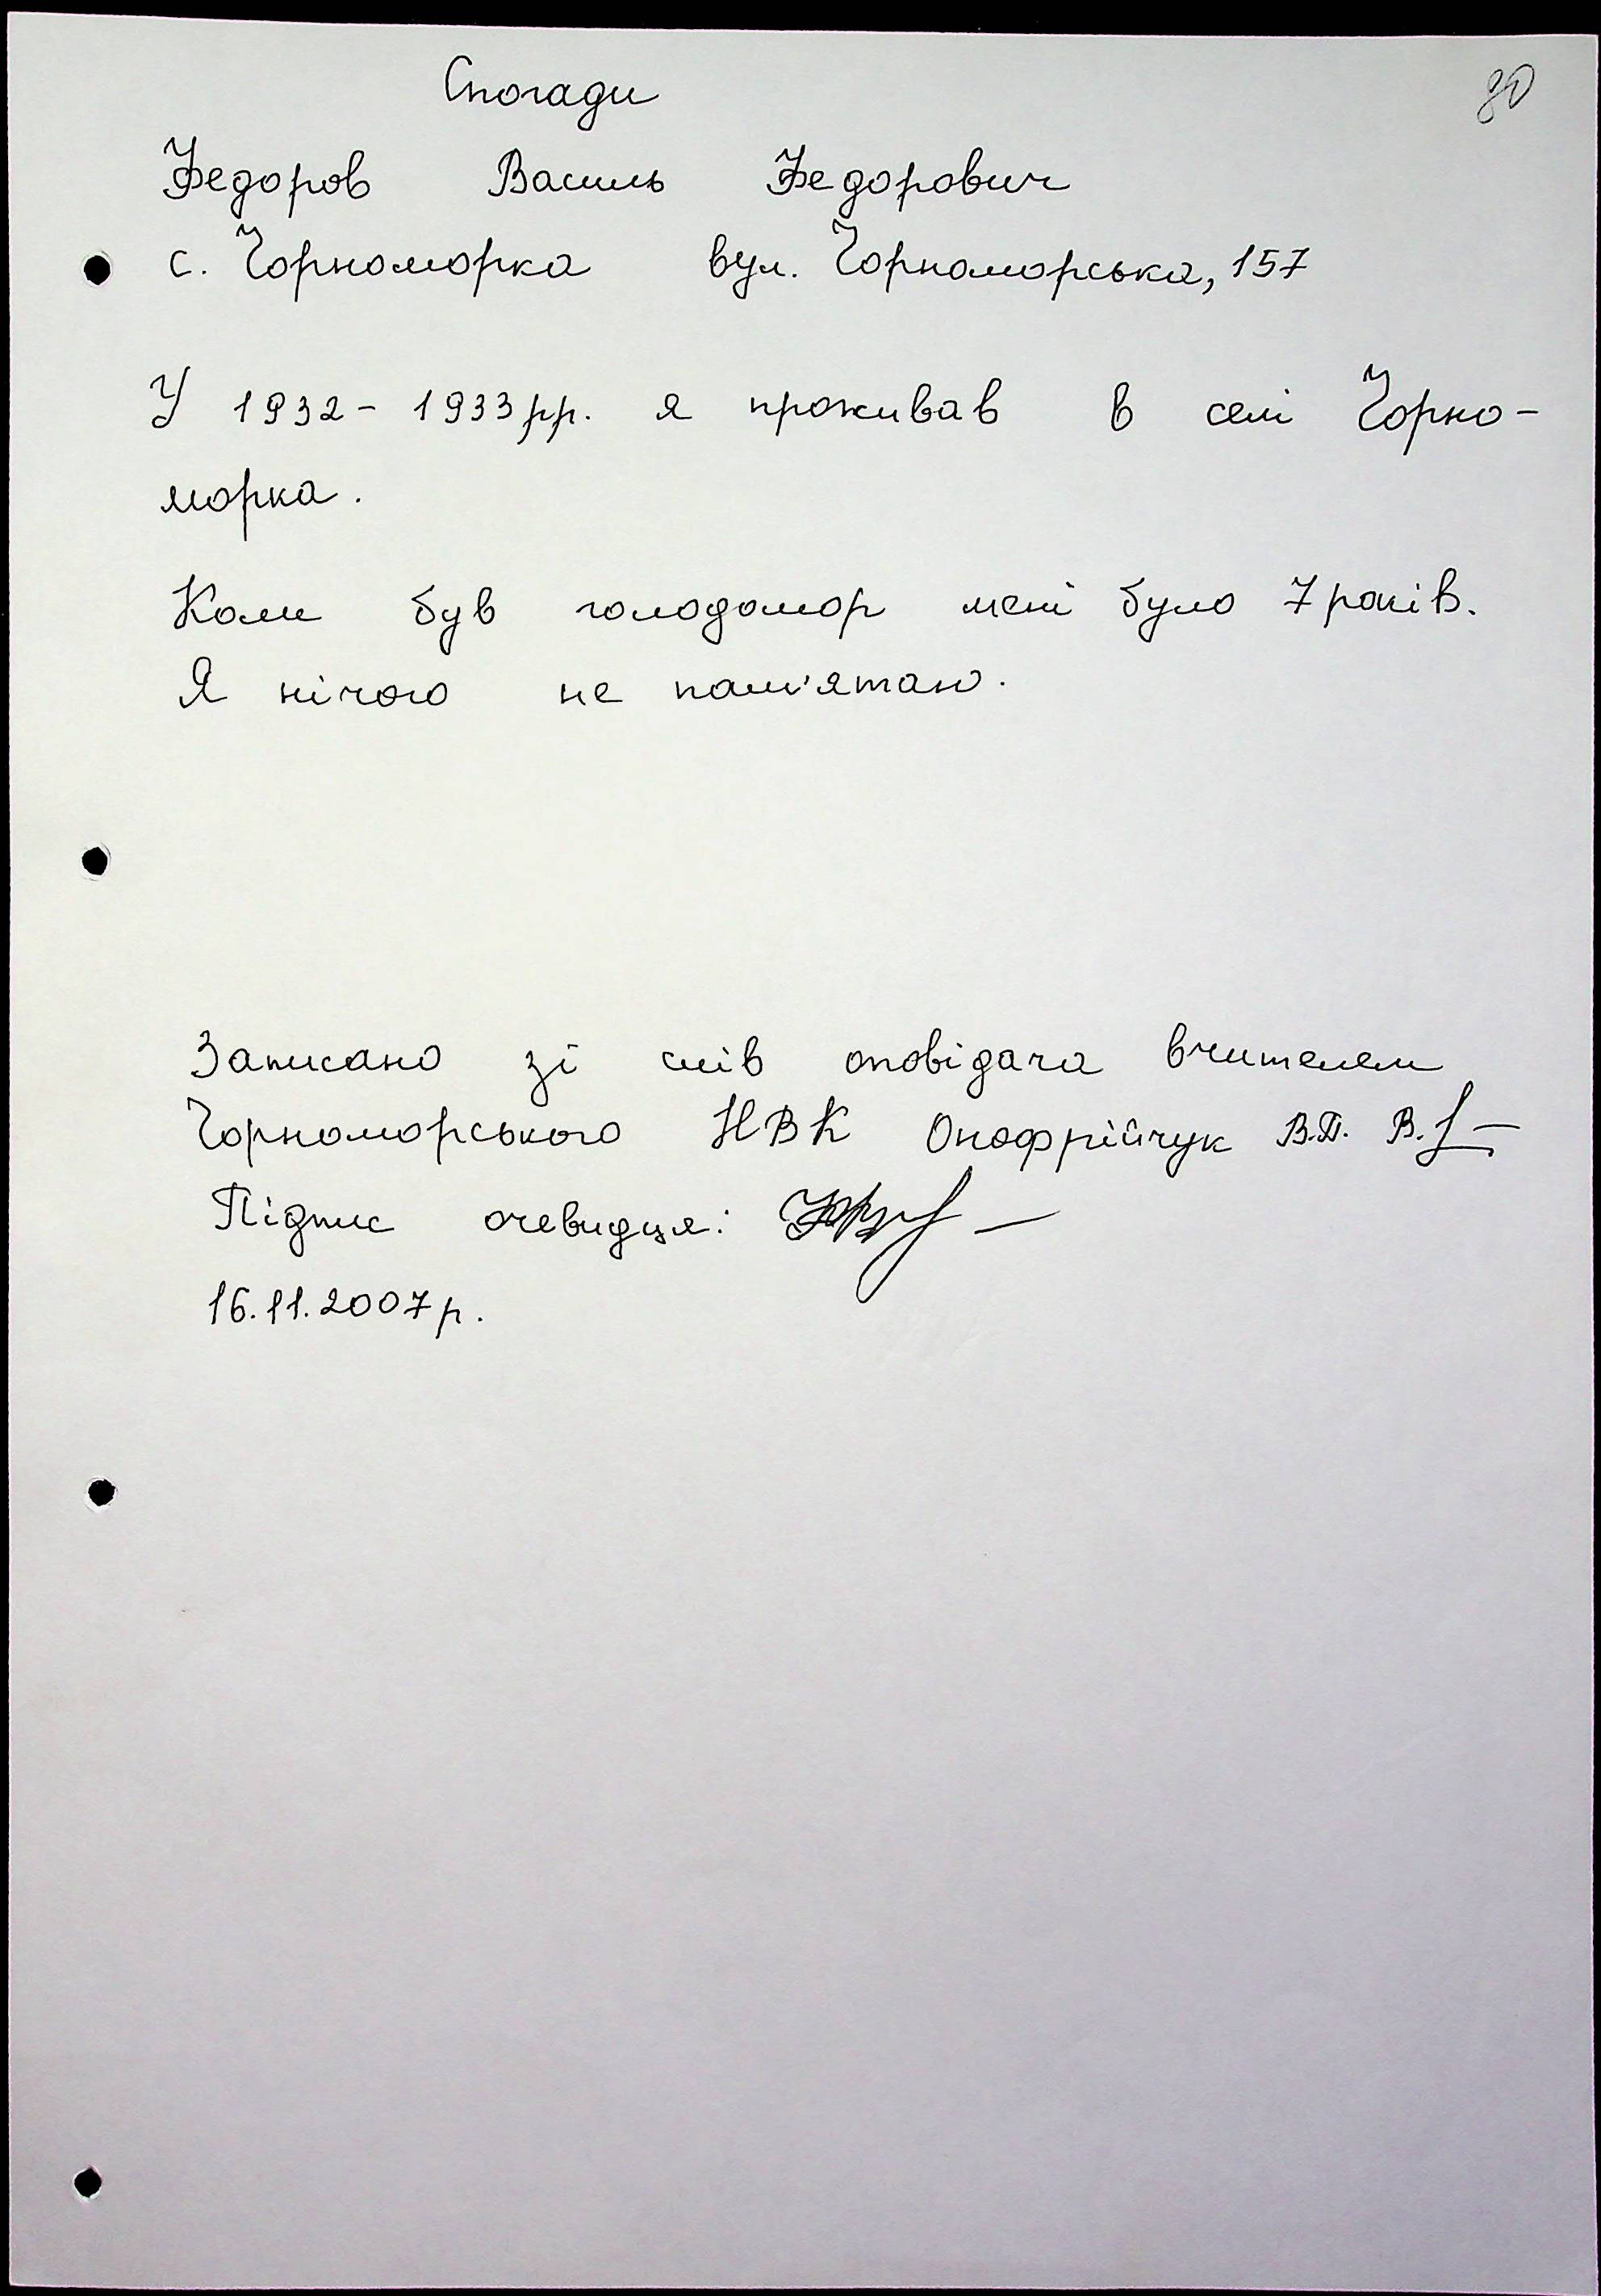 Спогади
80
Федоров Василь Федорович
с. Чорноморка вул. Чорноморська, 157
У 1932-1933рр. я проживав в селі Чорно-
морка.
Коли був голодомор мені було 7 років.
Я нічого не пам'ятаю.
Записано зі слів оповідача вчителем
Чорноморського НВК Онофрійчук В.П.
Підпис очевидця:
16.11.2007р.